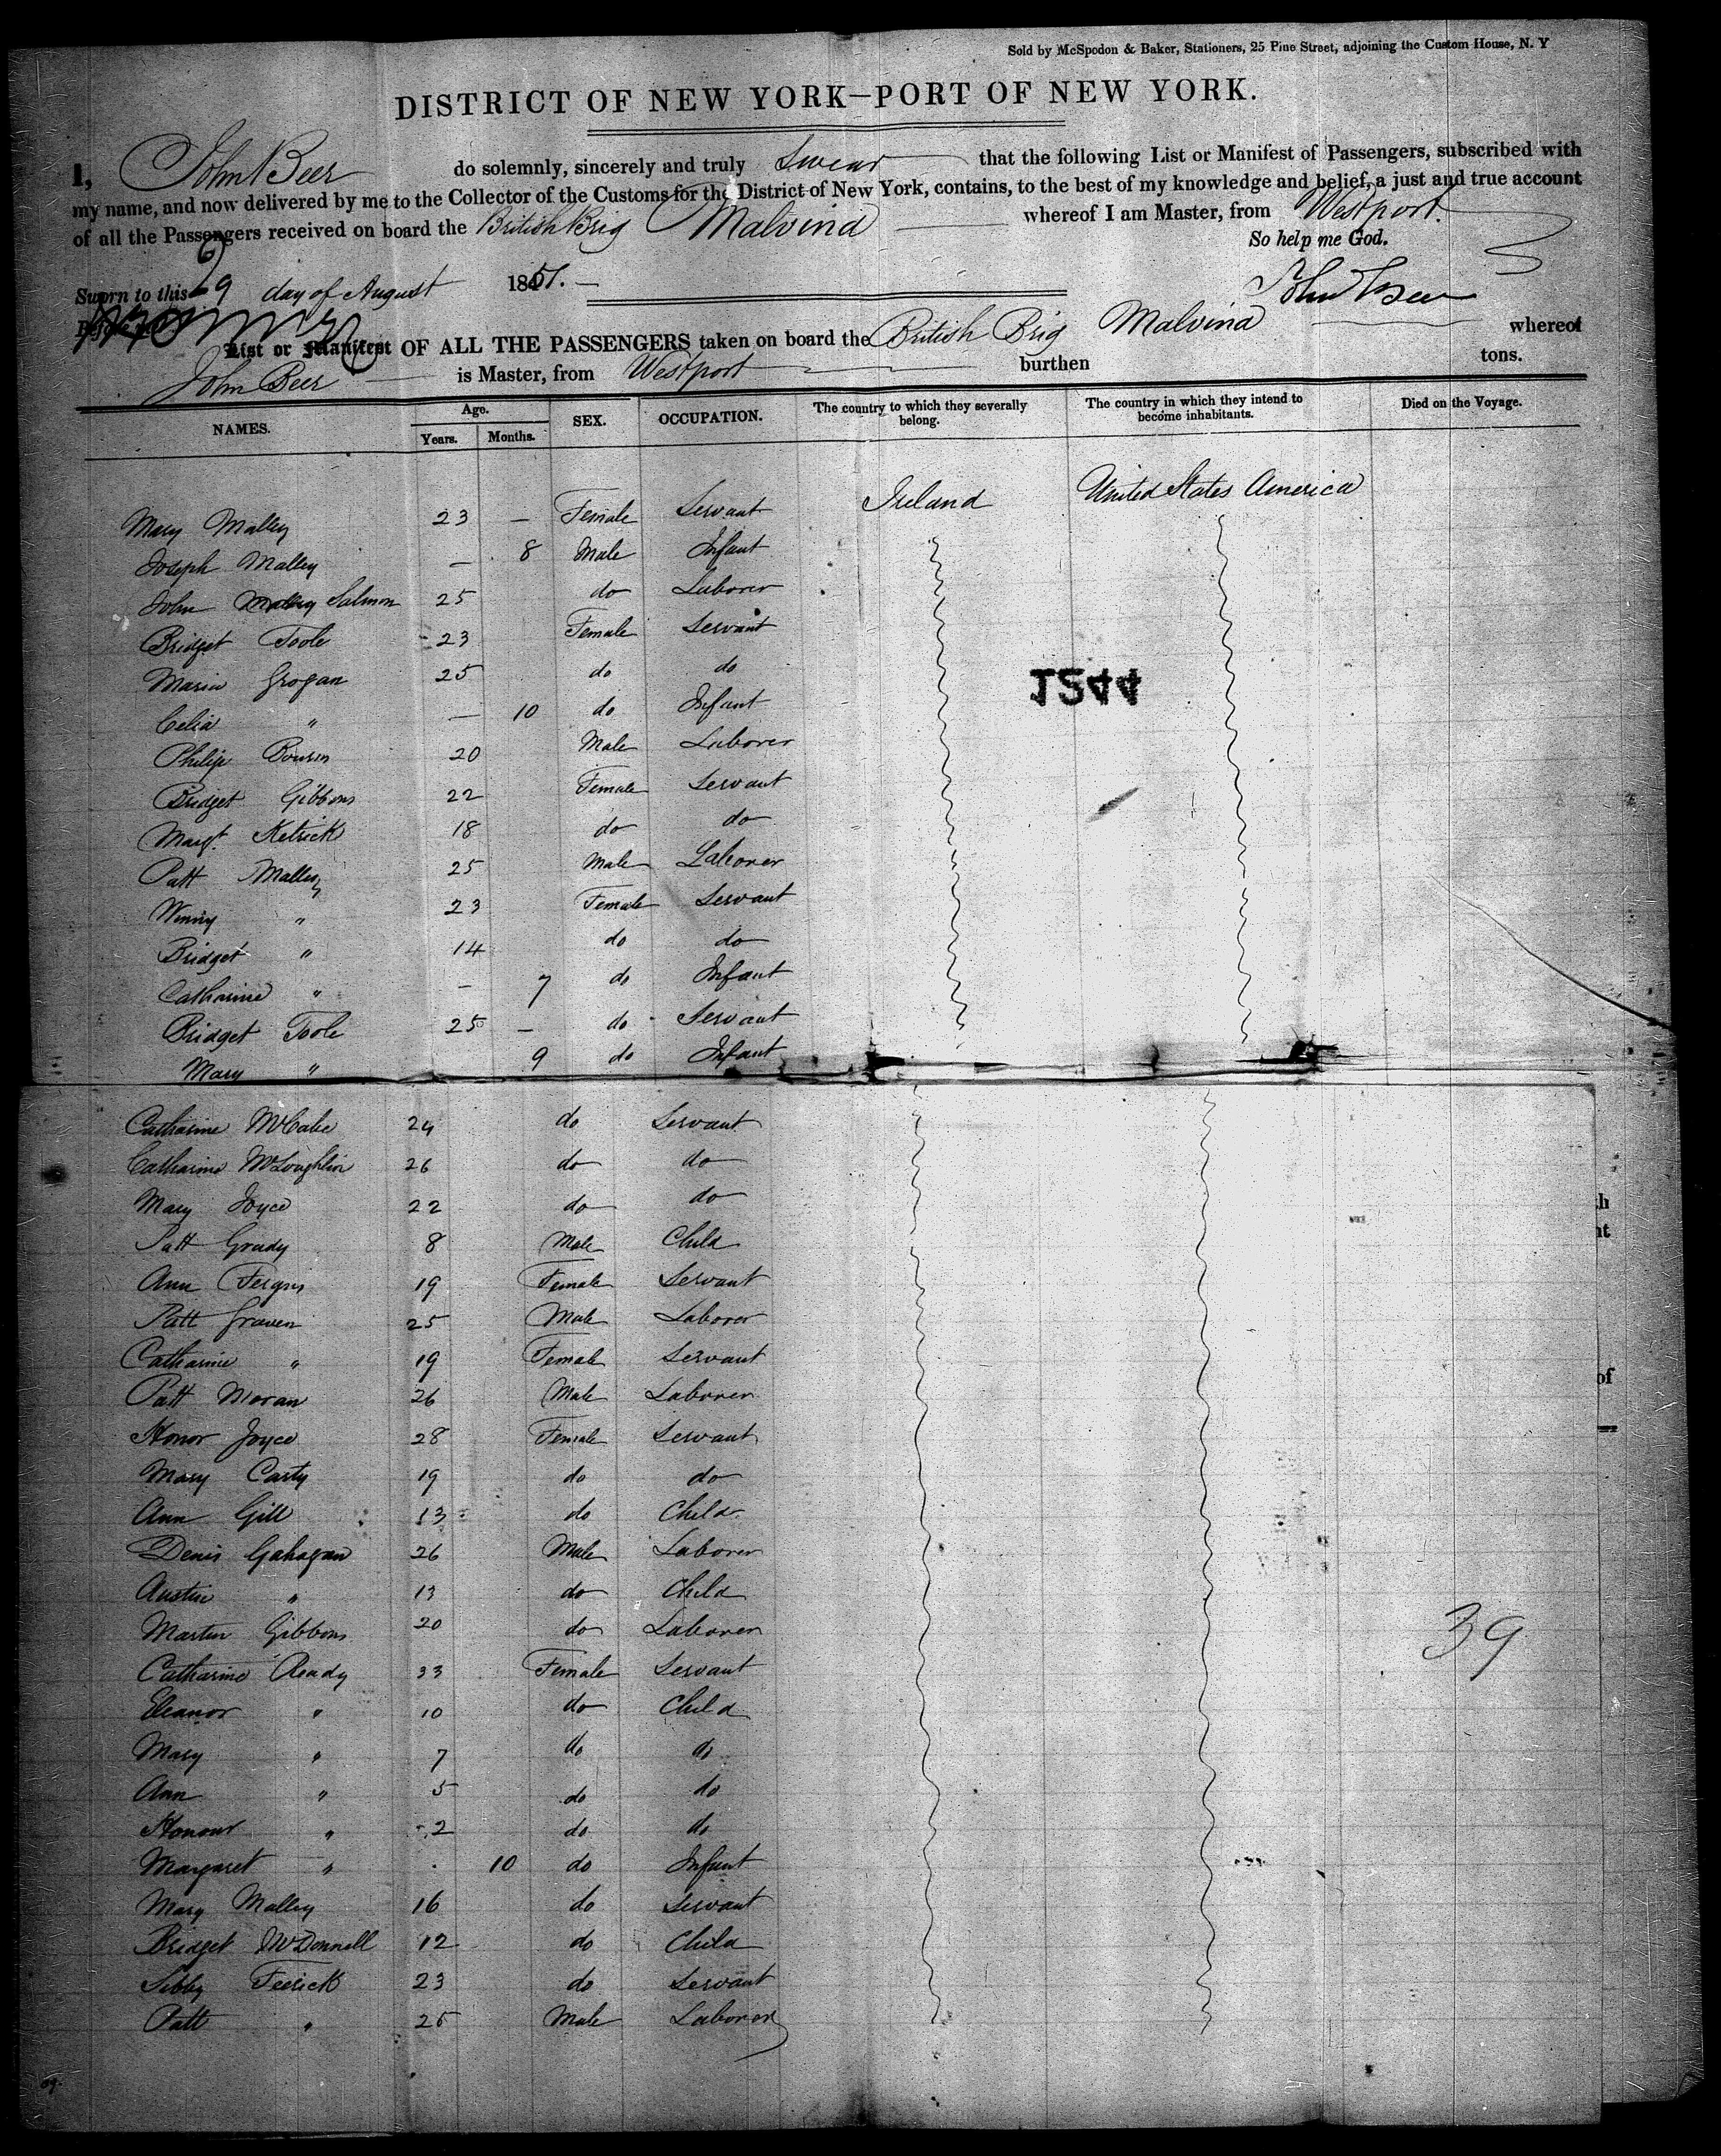 Sold by McSpedon & Baker, Stationers, 25 Pine Street, adjoining the Custom House, N. Y
DISTRICT OF NEW YORK—PORT OF NEW YORK.
I, John Beer do solemnly, sincerely and truly Swear that the following List or Manifest of Passengers, subscribed with
my name, and now delivered by me to the Collector of the Customs for the District of New York, contains, to the best of my knowledge and belief, a just and true account
of all the Passengers received on board the British Brig Malvina whereof I am Master, from Westport.
So help me God.
Sworn to this 9 day of August 1851.
John Beer
List or Manifest OF ALL THE PASSENGERS taken on board the British Brig Malvina whereof
John Beer is Master, from Westport burthen tons.
NAMES. Age. Years. Months. SEX. OCCUPATION. The country to which they severally belong. The country in which they intend to become inhabitants. Died on the Voyage.
Mary Malley 23 — Female Servant Ireland United States America
Joseph Malley — 8 Male Infant
John Malley Salmon 25 do Laborer
Bridget Toole 23 Female Servant
Maria Grogan 25 do do
1544
Celia " — 10 do Infant
Philip 20 Male Laborer
Bridget Gibbons 22 Female Servant
Margt. Ketrick 18 do do
Patt Malley 25 Male Laborer
Winny " 23 Female Servant
Bridget " 14 do do
Catharine " — 7 do Infant
Bridget Toole 25 — do Servant
Mary " 9 do Infant
Catharine McCabe 24 do Servant
Catharine McLoughlin 26 do do
Mary Joyce 22 do do
Patt Grady 8 Male Child
Ann Fergus 19 Female Servant
Patt Graven 25 Male Laborer
Catharine " 19 Female Servant
Patt Moran 26 Male Laborer
Honor Joyce 28 Female Servant
Mary Carty 19 do do
Ann Gill 13 do Child
Denis Gahagan 26 Male Laborer
Austin " 13 do Child
Martin Gibbons 20 do Laborer
39
Catharine Ready 33 Female Servant
Eleanor " 10 do Child
Mary " 7 do do
Ann " 5 do do
Honour " 2 do do
Margaret " 10 do Infant
Mary Malley 16 do Servant
Bridget McDonnell 12 do Child
Sibby Feerick 23 do Servant
Patt " 25 Male Laborer